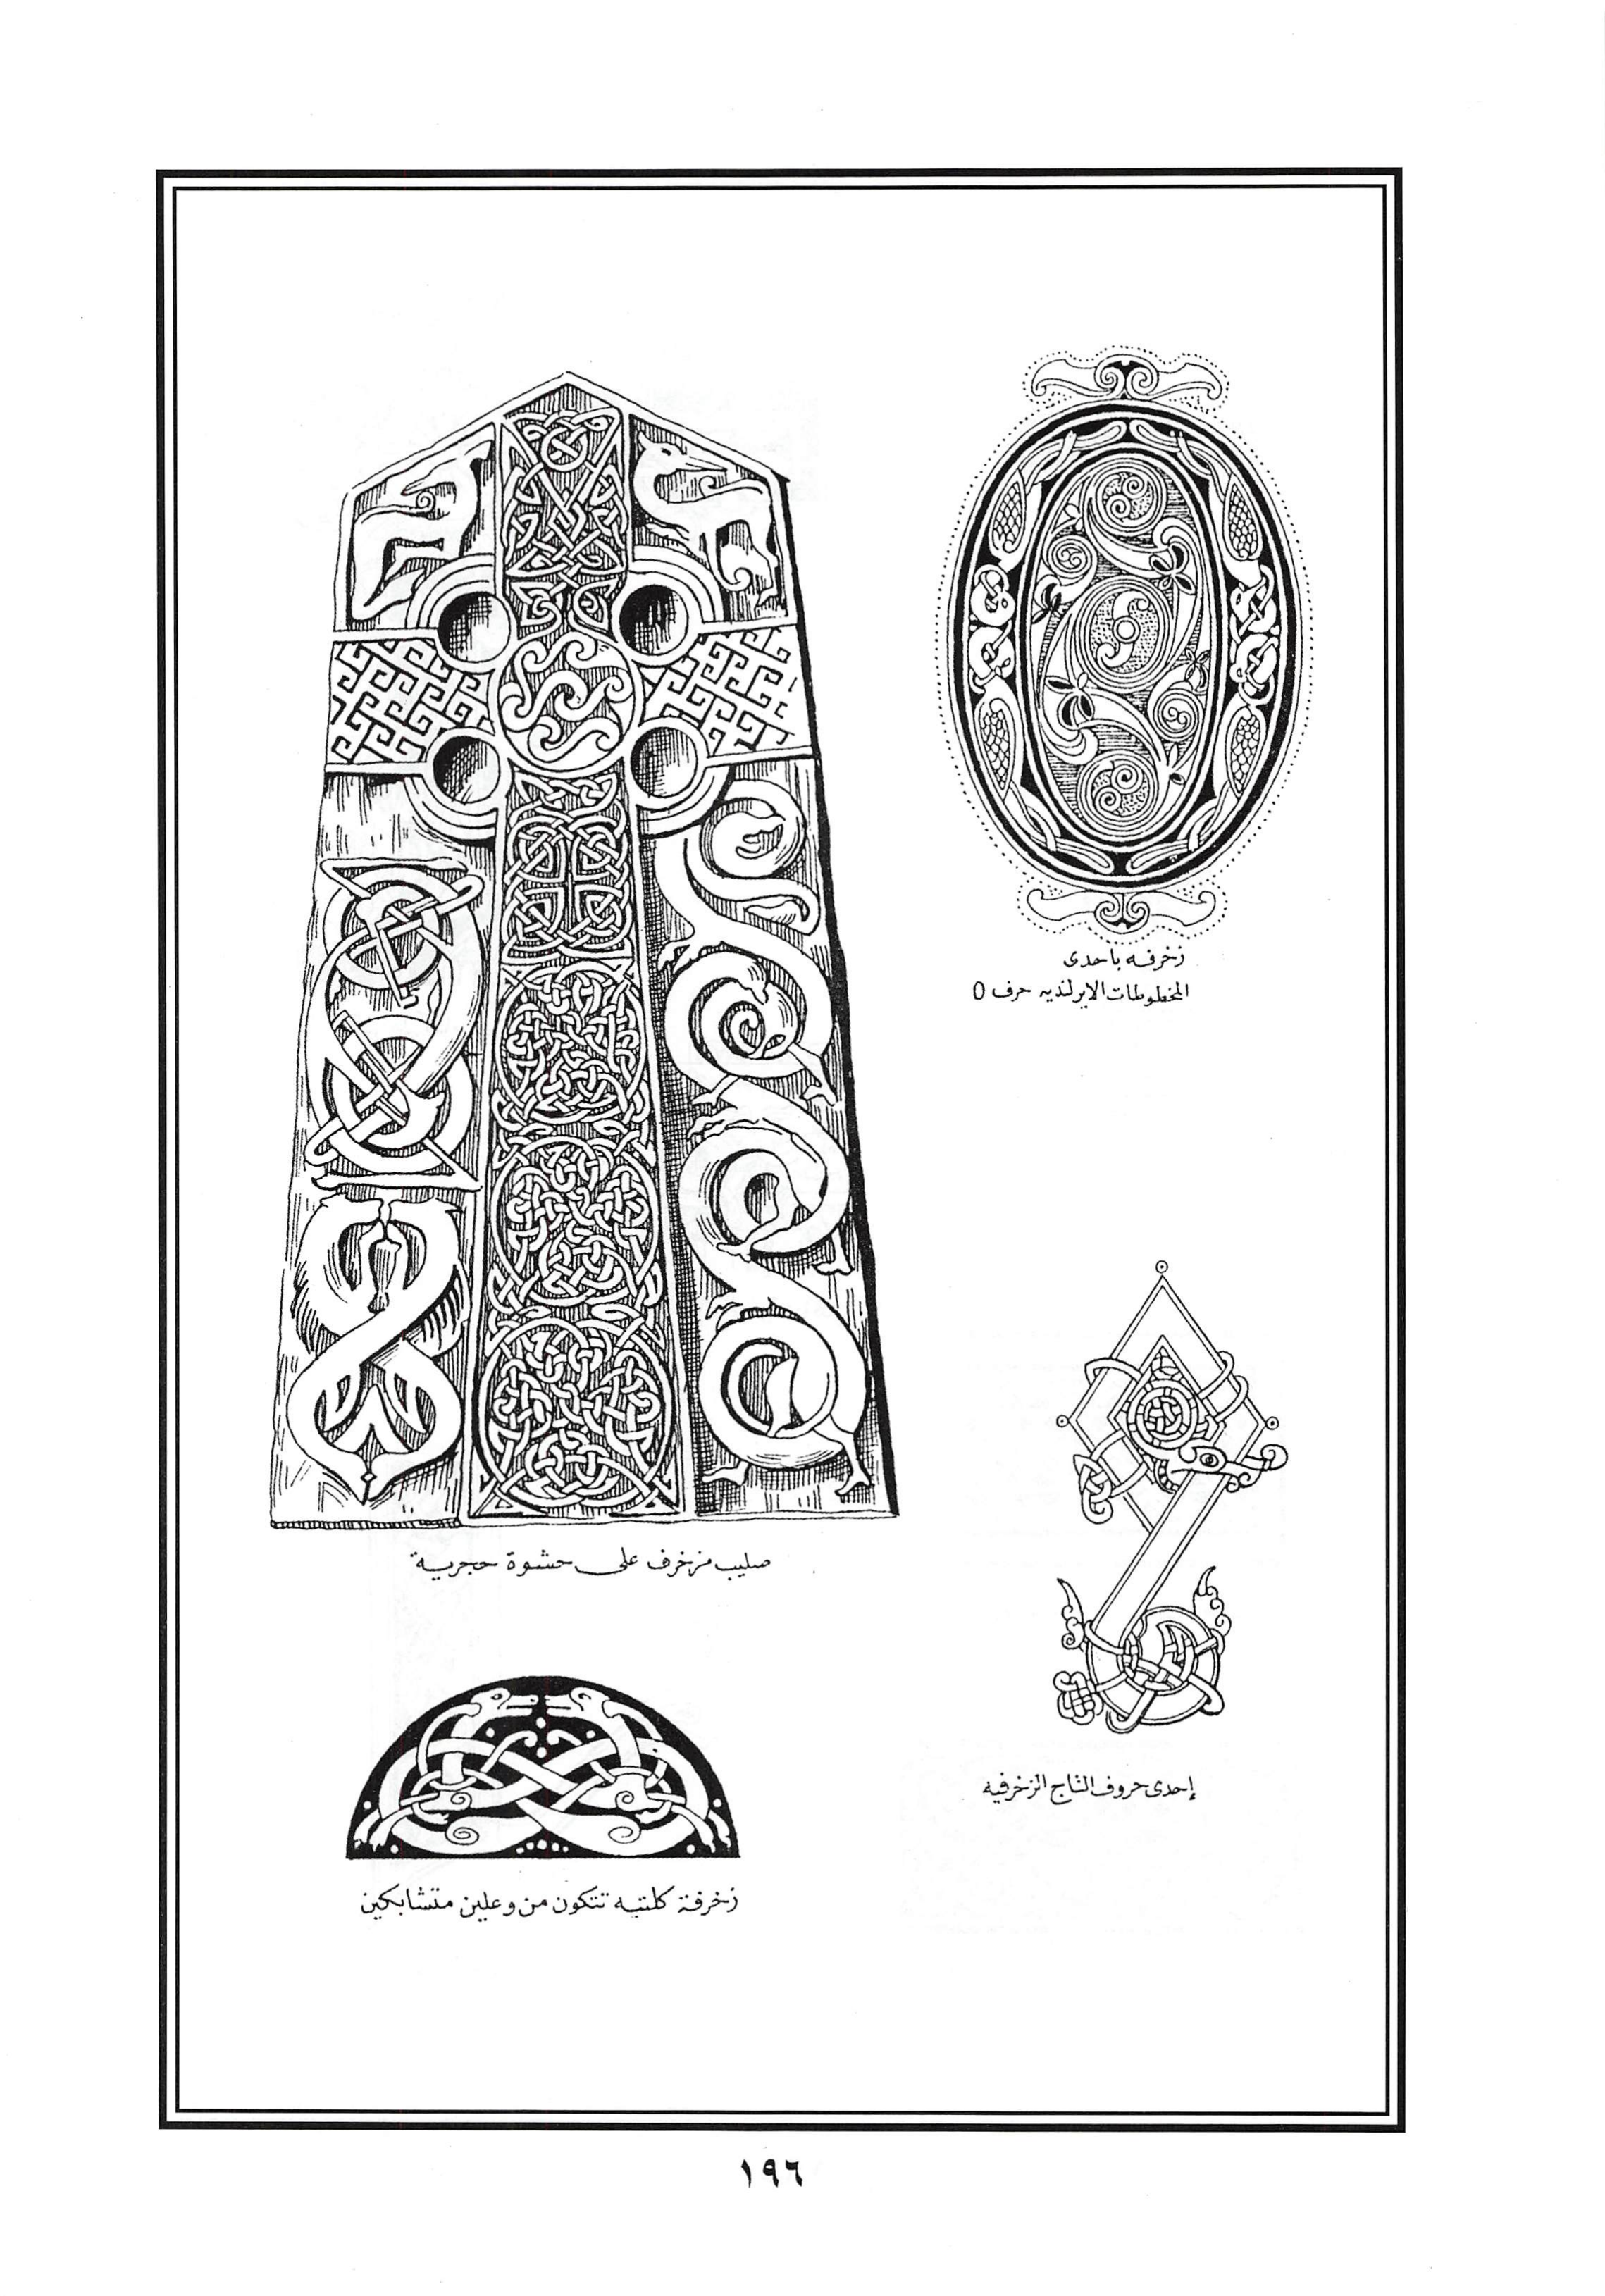 زخرفه باحدى
المخطوطات الايرلنديه حرف O
صليب مزخرف على حشوة حجرية
إحدى حروف التاج الزخرفيه
زخرفة كلتيه تتكون من وعلين متشابكين
١٩٦